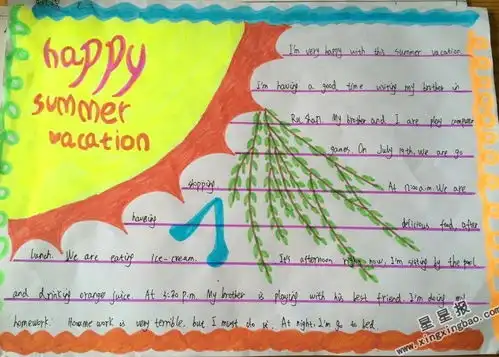 happy
summer
vacation
I'm very happy with this summer vacation.
I'm having a good time visiting my brother in
Rushan. My brother and I are play computer
games. On July 19th, We are go
shopping. At 12:00 a.m. We are
hauging delicious food, after
lunch. We are eating ice-cream. It's afternoon right now, I'm sitting by the pool
and drinking orange juice. At 3:30 p.m. My brother is playing with his best friend. I'm doing my
homework. Home work is very terrible, but I must do it. At night, I'm go to bed.
星星报
www.xingxingbao.cn